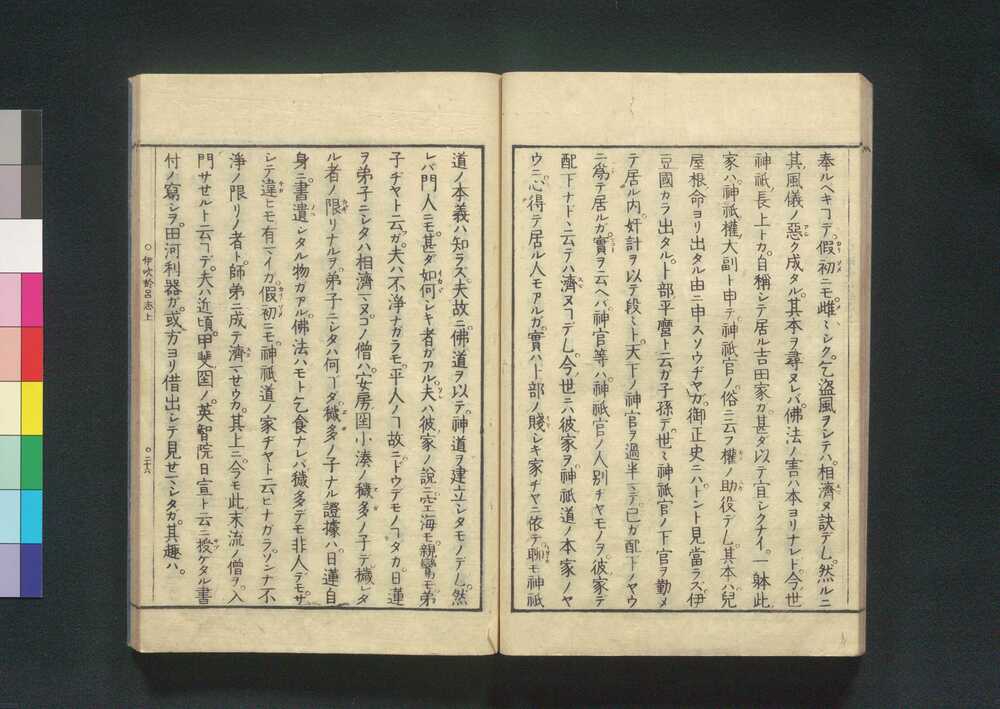 奉ルヘキヿデ。假初ニモ雌々シク乞盗風ヲシテハ。相濟ヌ訣デム。然ルニ
其風儀ノ惡ク成タル。其本ヲ尋ヌレバ。佛法ノ害ハ本ヨリナレド。今世
神祇長上トカ。自稱シテ居ル吉田家ガ甚ダ以テ宜シクナイ。一躰此
家ハ。神祇權大副ト申テ。神祇官ノ。俗ニ云フ權ノ助役デム。其本ハ兒
屋根命ヨリ出タル由ニ申スソウヂヤガ。御正史ニハトント見當ラズ。伊
豆國カラ出タル。卜部平麿ト云ガ子孫デ。世々神祇官ノ下官ヲ勤メ
テ居ル内。奸計ヲ以テ段々ト。天下ノ神官ヲ過半々デ己ガ配下ノヤウ
ニ爲テ居ルガ。實ヲ云ヘバ。神官等ハ。神祇官ノ人別ヂヤモノヲ。彼家デ
配下ナドヽ云テハ濟ヌコデム。今ノ世ニハ彼家ヲ。神祇道ノ本家ノヤ
ウニ心得テ居ル人モアルガ。實ハ卜部ノ賤シキ家ヂヤニ依テ。聊モ神祇
道ノ本義ハ知ラズ。夫故ニ佛道ヲ以テ神道ヲ建立シタモノデム。然
レバ門人ニモ。甚ダ如何シキ者ガアル。夫ハ彼家ノ說ニ空海モ。親鸞モ弟
子ヂヤト云ガ。夫ハ不淨ナガラモ。平人ノヿ故ニ。ドウデモノヿタカ。日蓮
ヲ弟子ニシタハ相濟々ヌコ。ノ僧ハ。安房国小湊ノ穢多ノ子デ。穢レタ
ル者ノ限リナルヲ。弟子ニシタハ何ーダ。穢多ノ子ナル證據ハ。日蓮自
身ニ書遺シタル物ガアル。佛法ハモト乞食ナレバ。穢多デモ非人デモ。サ
シテ違ヒモ有々イガ。假初ニモ。神祇道ノ家ヂヤト云ヒナガラ。ソンナ不
淨ノ限リノ者ト。師弟ニ成テ濟々セウカ。其上ニ今モ此末流ノ僧ヲ。入
門サセルト云コデ。夫ハ近頃。甲斐国ノ。英智院日宣ト云ニ。授ケタル書
付ノ寫シヲ。田河利器ガ。或方ヨリ借出シテ見セ々シタガ。其趣ハ。
○伊吹於呂志上
○二十八